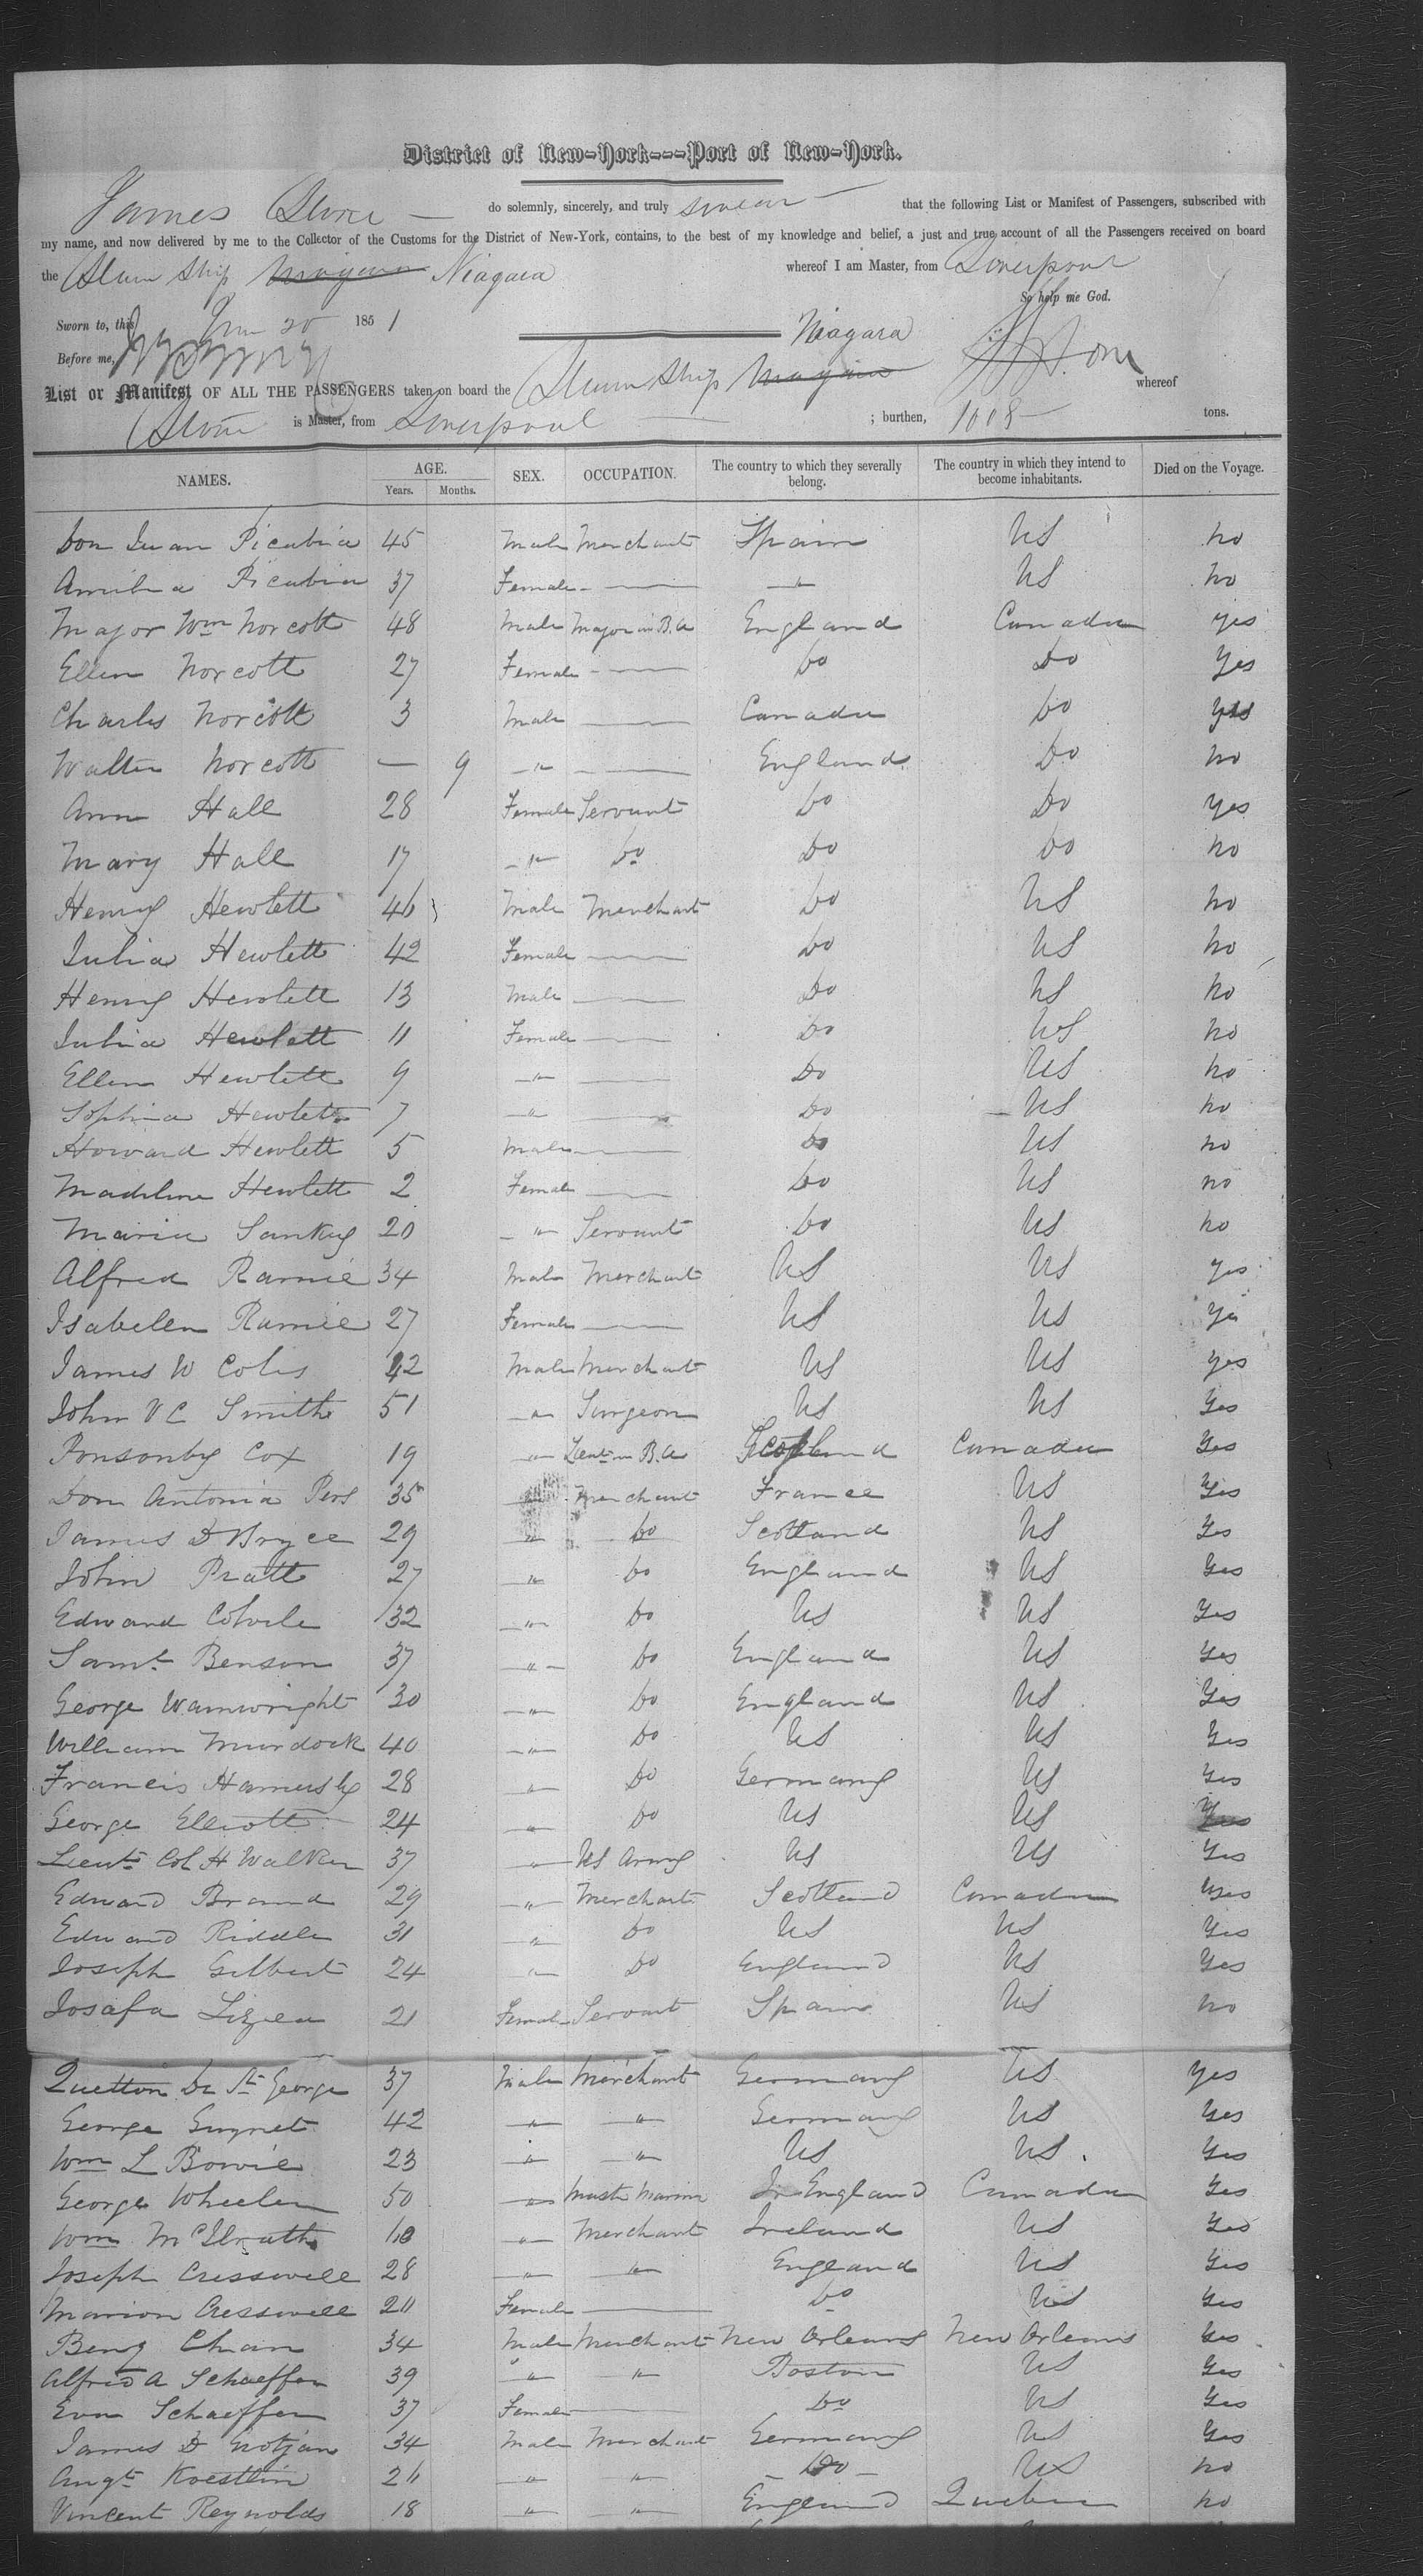 District of New-York---Port of New-York.
James Stone — do solemnly, sincerely, and truly swear that the following List or Manifest of Passengers, subscribed with
my name, and now delivered by me to the Collector of the Customs for the District of New-York, contains, to the best of my knowledge and belief, a just and true account of all the Passengers received on board
the Steam Ship Niagara whereof I am Master, from Liverpool
So help me God.
Sworn to, this 20 1851
Niagara
Before me,
List or Manifest OF ALL THE PASSENGERS taken on board the Steam Ship whereof
Stone is Master, from Liverpool ; burthen, tons.
NAMES. AGE. SEX. OCCUPATION. The country to which they severally belong. The country in which they intend to become inhabitants. Died on the Voyage.
Years. Months.
Don Juan Picabia 45 Male Merchant Spain US no
Picabia 37 Female — " US no
Major Wm Norcott 48 Male Major in B.A England Canada yes
Ellen Norcott 27 Female — Do Do Yes
Charles Norcott 3 Male — Canada Do yes
Walter Norcott — 9 " — England Do no
Ann Hall 28 Female Servant Do Do yes
Mary Hall 17 " Do Do Do no
Henry Hewlett 46 Male Merchant Do US no
Julia Hewlett 42 Female — Do US no
Henry Hewlett 13 Male — Do US no
Julia Hewlett 11 Female — Do US no
Ellen Hewlett 9 " — Do US no
Sophia Hewlett 7 " — Do US no
Howard Hewlett 5 Male — Do US no
Madeline Hewlett 2 Female — Do US no
Maria Sankey 20 " Servant Do US no
Alfred Ramie 34 Male Merchant US US yes
Isabelen Ramie 27 Female — US US yes
James W Coles 42 Male Merchant US US yes
John V C Smith 51 " Surgeon US US Yes
Ponsonby Cox 19 " Lieut in B.A Scotland Canada Yes
Don Antonia Pers 35 " Merchant France US Yes
James D Bryce 29 " Do Scotland US Yes
John Pratt 27 " Do England US Yes
Edward Colvile 32 " Do US US Yes
Saml Benson 37 " Do England US Yes
George Wainwright 30 " Do England US Yes
William Murdock 40 " Do US US Yes
Francis Hamersly 28 " Do Germany US Yes
George Elliott 24 " Do US US Yes
Lieut Col H Walker 37 " US Army US US Yes
Edward Brand 29 " Merchant Scotland Canada Yes
Edward Riddle 31 " Do US US Yes
Joseph Gilbert 24 " Do England US Yes
Josafa 21 Female Servant Spain US no
Quetton De St George 37 Male Merchant Germany US Yes
George Guynet 42 " " Germany US Yes
Wm L Bowie 23 " " US US Yes
George Wheeler 50 " Mast Marine England Canada Yes
Wm McIlrath " Merchant Ireland US Yes
Joseph Cresswell 28 " " England US Yes
Marion Cresswell Female — Do US Yes
Benj Chan 34 Male Merchant New Orleans New Orleans Yes
Alfred A Schaeffer 39 " " Boston US Yes
Eva Schaeffer 37 Female — Do US Yes
James D Grotjan 34 Male Merchant Germany US Yes
Augt Koestlin " " Do US no
Vincent Reynolds 18 " " England Quebec no